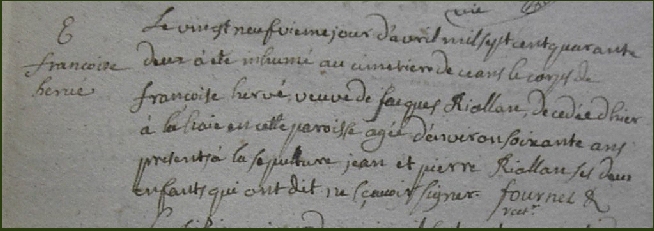 E
francoise
herve
Le vingt neufvieme jour d'avril mil sept cent quarante
deux à eté inhumé au cimetiere de ceans le corps de
françoise hervé, veuve de Jacques Riallan, decedée d'hier
à la haie en cette paroisse agée d'environ soixante ans
presents à la sepulture jean et pierre Riallan ses deux
enfants qui ont dit ne sçavoir signer. fournel R
rect.r